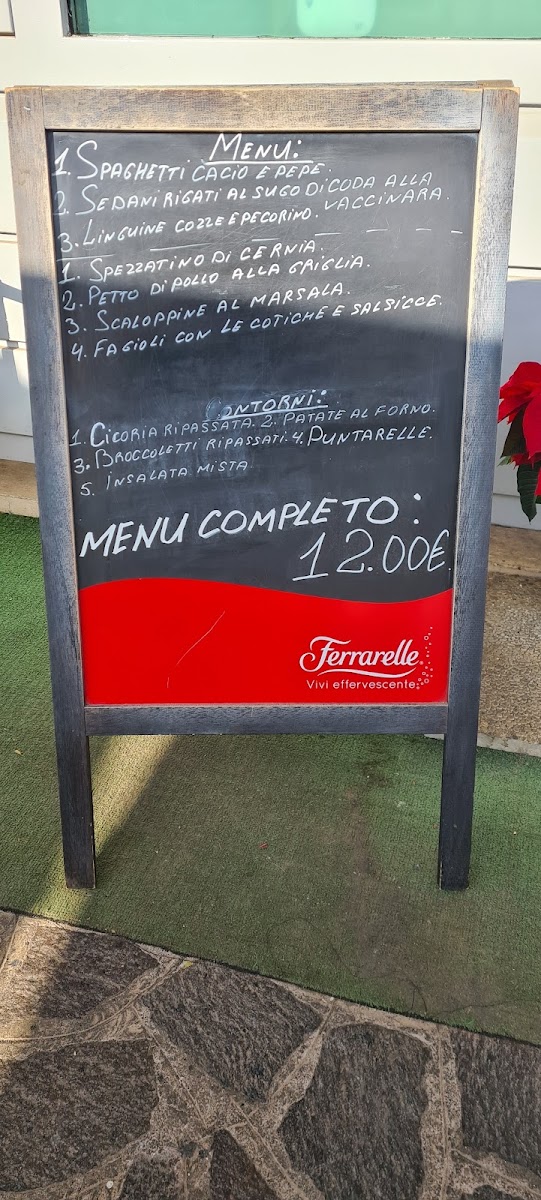 MENU:
1. SPAGHETTI CACIO E PEPE.
2. SEDANI RIGATI AL SUGO DI CODA ALLA
VACCINARA.
3. LINGUINE COZZE E PECORINO.
1. SPEZZATINO DI CERNIA.
2. PETTO DI POLLO ALLA GRIGLIA.
3. SCALOPPINE AL MARSALA.
4. FAGIOLI CON LE COTICHE E SALSICCE.
CONTORNI:
1. CICORIA RIPASSATA. 2. PATATE AL FORNO.
3. BROCCOLETTI RIPASSATI. 4. PUNTARELLE.
5. INSALATA MISTA
MENU COMPLETO:
12.00€
Ferrarelle
Vivi effervescente.